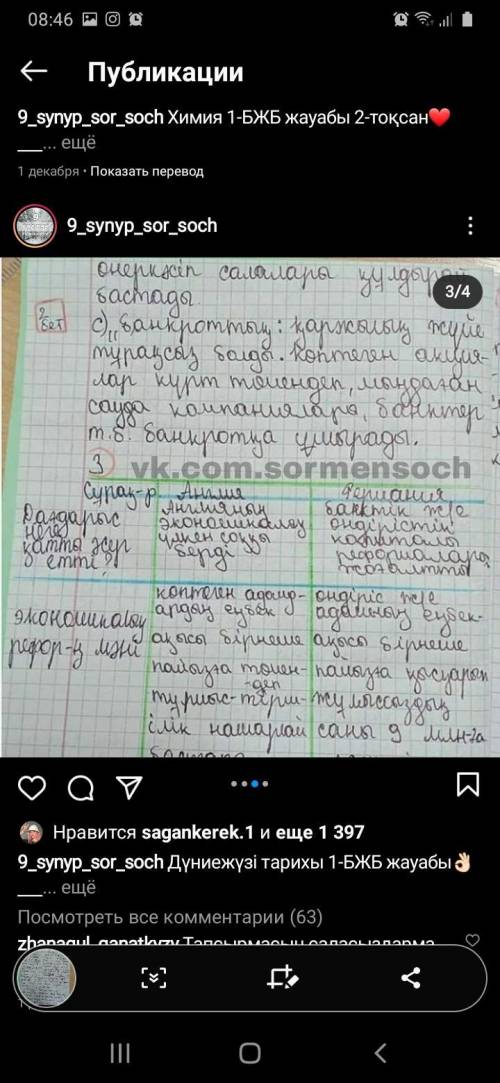 08:46
Публикации
9_synyp_sor_soch Химия 1-БЖБ жауабы 2-тоқсан❤️
___... ещё
1 декабря • Показать перевод
9_synyp_sor_soch
3/4
өнеркәсіп салалары құлдырай
бастады.
2 бет
с),, банкроттық: қаржылық жүйе
тұрақсыз болды. Көптеген акция-
лар күрт төмендеп, мыңдаған
сауда компаниялары, банктер
т.б. банкротқа ұшырады.
3
vk.com.sormensoch
Сұрақ-р
Англия
Германия
Дағдарыс
неге
қатты әсер
етті?
Англияның
экономикалық
үлкен соққы
берді
банктік және
өндірістік
капиталы
реформалары
жоғалтты
экономикалық
рефор-ң мәні
көптеген адамд-
ардың еңбек
ақысы бірнеше
пайызға төмен-
деп
тұрмыс-тірш-
ілік нашарлай
бастады
өндіріс және
адамның еңбек-
ақысы бірнеше
пайызға қысқарып
жұмыссыздық
саны 9 млн-ға
Нравится sagankerek.1 и еще 1 397
9_synyp_sor_soch Дүниежүзі тарихы 1-БЖБ жауабы👌🏻
___... ещё
Посмотреть все комментарии (63)
zhanagul_ganatkyzy Тапсырмасын саласыздарма